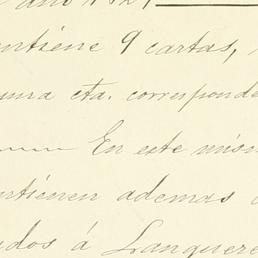 ntiene 9 cartas,
cta. corresponde
En este mism
ntienen ademas
dos á Lanquere